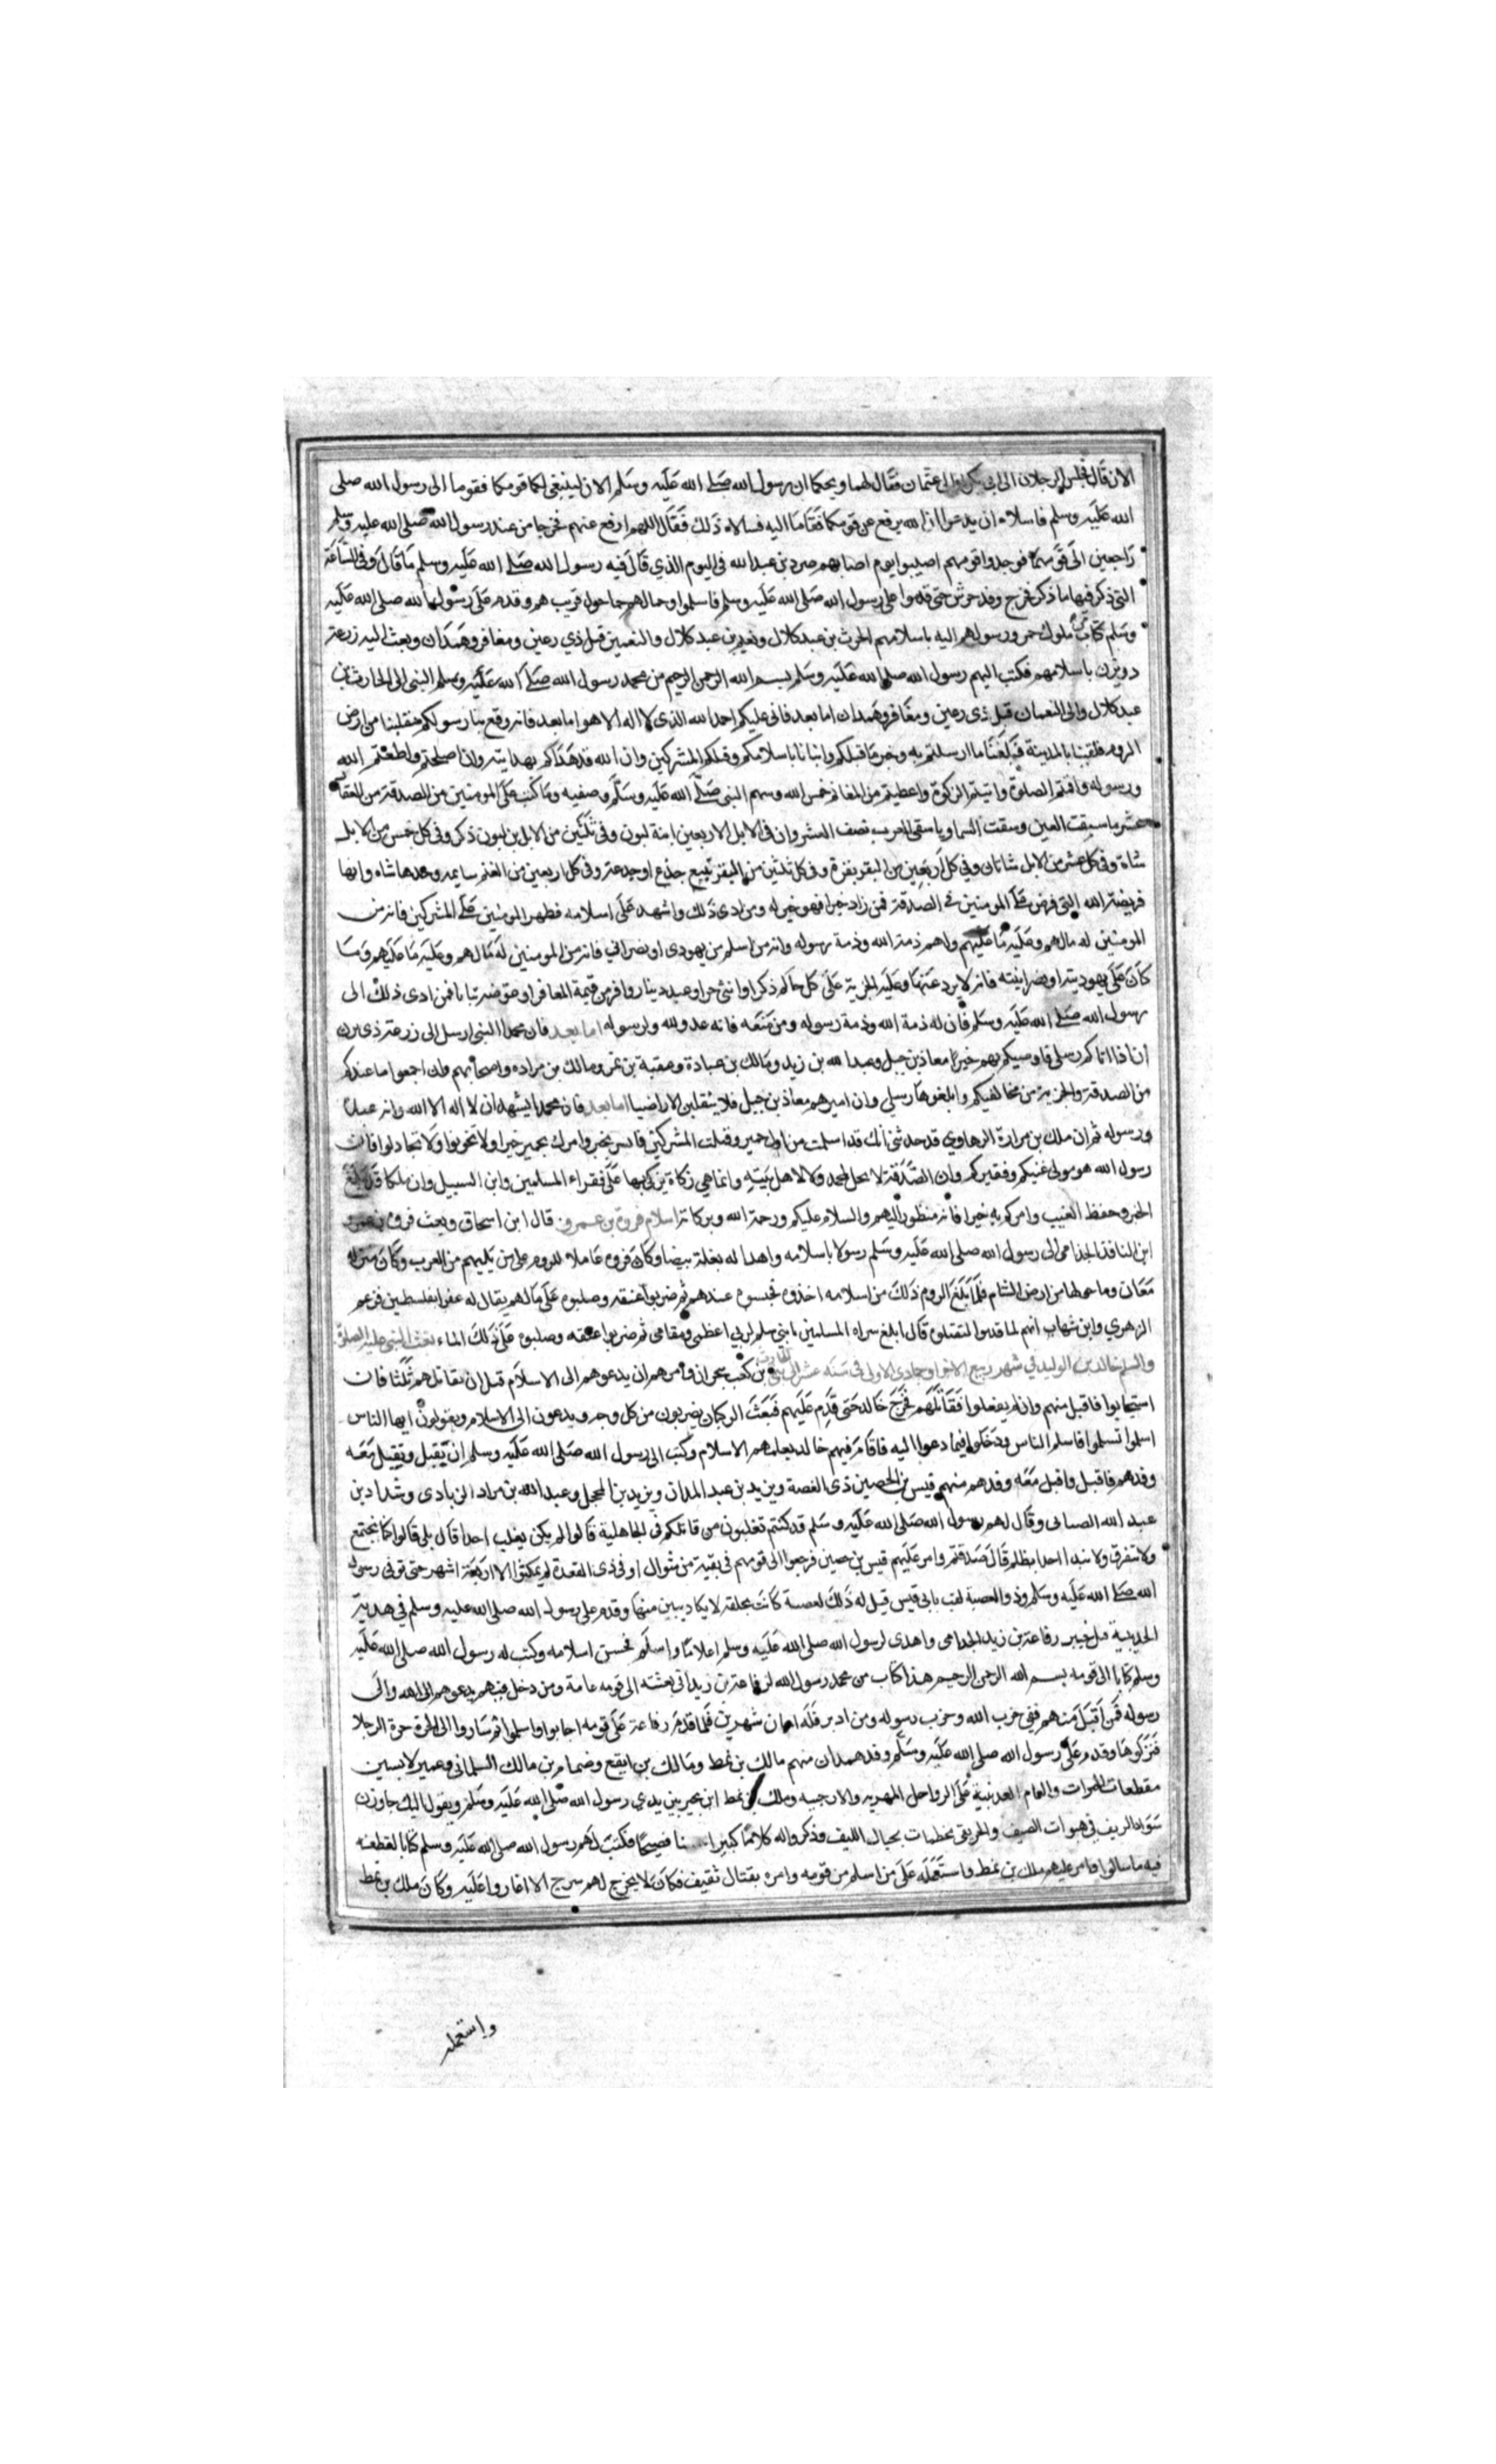 الان قال فجلس الرجلان الى ابى بكر والى عثمان فقال لهما ويحكما ان رسول الله صلى الله عليه وسلم الان لينبغى لكما قومكما فقوما الى رسول الله صلى
الله عليه وسلم فاسلاه ان يدعوا الله يرفع عن قومكما فقاما اليه فسالاه ذلك فقال اللهم ارفع عنهم فخرجا من عند رسول الله صلى الله عليه وسلم
راجعين الى قومهما فوجدوا قومهم اصيبوا يوم اصابهم صرد بن عبد الله فى اليوم الذي قال فيه رسول الله صلى الله عليه وسلم ما قال وفى الساعة
التى ذكر فيها ما ذكر فخرج وفد جرش حتى قدموا على رسول الله صلى الله عليه وسلم فاسلموا وحمالهم حما حول قريب هم وقدم على رسول الله صلى الله عليه
وسلم كتاب ملوك حمير ورسولهم اليه باسلامهم الحرث بن عبد كلال ونعيم بن عبد كلال والنعمين قيل ذي رعين ومعافر وهمدان وبعث اليه زرعة
ذويزن باسلامهم فكتب اليهم رسول الله صلى الله عليه وسلم بسم الله الرحمن الرحيم من محمد رسول الله صلى الله عليه وسلم النبى الى الحارث بن
عبد كلال والى النعمان قيل ذى رعين ومعافر وهمدان اما بعد فانى عليكم احمد الله الذى لا اله الا هو اما بعد فانه وقع بنا رسولكم منقلبنا من ارض
الروم فلقينا بالمدينة فبلغنا ما ارسلتم به وخبر ما قبلكم وانبانا باسلامكم وقتلكم المشركين وان الله قد هداكم بهدايته وان اصلحتم واطعتم الله
ورسوله واقمتم الصلوة واتيتم الزكوة واعطيتم من المغانم خمس الله وسهم النبى صلى الله عليه وسلم وصفيه وما كتب على المومنين من الصدقة من العقار
عشر ما سقت العين وسقت السما وما سقى الغرب نصف العشر وان فى الابل الاربعين ابنة لبون وفى ثلثين من الابل بن لبون ذكر وفى كل خمس من الابل
شاة وفى كل عشر من الابل شاتان وفي كل اربعين من البقر بقرة وفى كل ثلثين من البقر تبيع جذع او جذعة وفى كل اربعين من الغنم سايمه وحدها شاه وانها
فريضة الله التى فرض على المومنين فى الصدقة فمن زاد خيرا فهو خير له ومن ادى ذلك واشهد على اسلامه فظهر المومنين على المشركين فانه من
المومنين له مالهم وعليه ما عليهم ولهم ذمة الله وذمة رسوله وانه من اسلم من يهودى او نصراني فانه من المومنين له مالهم وعليه ما عليهم ومن
كان على يهوديته او نصرانيته فانه لا يرد عنها وعليه الجزية على كل حالم ذكر او انثى حر او عبد دينار وافر من قيمة المعافر او عوضه ثيابا فمن ادى ذلك الى
رسول الله صلى الله عليه وسلم فان له ذمة الله وذمة رسوله ومن منعه فانه عدو لله ولرسوله اما بعد فان محمدا النبى ارسل الى زرعة ذى يزن
ان اذا اتاكم رسلى فاوصيكم بهم خيرا معاذ بن جبل وعبد الله بن زيد ومالك بن عبادة وعقبة بن نمر ومالك بن مراده واصحابهم وان اجمعوا ما عندكم
من الصدقة والجزية من مخالفيكم وابلغوها رسلي وان اميرهم معاذ بن جبل فلا ينقلبن الا راضيا اما بعد فان محمدا يشهد ان لا اله الا الله وانه عبده
ورسوله ثم ان ملك بن مرارة الرهاوي قد حدثنى انك قد اسلمت من اول حمير وقتلت المشركين فابشر بخير وامرك بحمير خيرا ولا تخونوا ولا تجادلوا فان
رسول الله هو مولى غنيكم وفقيركم وان الصدقة لا تحل لمحمد ولا لاهل بيته وانما هي زكاة يزكى بها على فقراء المسلمين وابن السبيل وان ملكا قد بلغ
الخبر وحفظ الغيب وامركم به خيرا فانه منظور اليهم والسلام عليكم ورحمة الله وبركاته اسلام فروة بن عمرو قال ابن اسحاق وبعث فروة بن عمرو
ابن النافذة الجذامى الى رسول الله صلى الله عليه وسلم رسولا باسلامه واهدا له بغلة بيضا وكان فروه عاملا للروم على من يليهم من العرب وكان منزله
معان وما حولها من ارض الشام فلما بلغ الروم ذلك من اسلامه اخذوه فحبسوه عندهم ثم ضربوا عنقه وصلبوه على مالهم يقال له عفرا بفلسطين فزعم
الزهري وابن شهاب انهم لما قدموا لتقتلوه قال ابلغ سراه المسلمين بانني سلم لربي اعظمى ومقامى ثم ضربوا عنقه وصلبوه على ذلك الماء بعث النبى عليه الصلوة
والسلم خالد بن الوليد في شهر ربيع الاخر او جمادى الاولى فى سنه عشر الى بنى الحارث بن كعب بنجران وامرهم ان يدعوهم الى الاسلام قبل ان يقاتلهم ثلثا فان
استجابوا فاقبل منهم وان لم يفعلوا فقاتلهم فخرج خالد حتى قدم عليهم فبعث الركبان يضربون من كل وجه ويدعون الى الاسلام ويقولون ايها الناس
اسلموا تسلموا فاسلم الناس ودخلوا فيما دعوا اليه فاقام فيهم خالد يعلمهم الاسلام وكتب الى رسول الله صلى الله عليه وسلم ان يقبل ويقبل معه
وفدهم فاقبل واقبل معه وفدهم منهم قيس بن الحصين ذى الغصة ويزيد بن عبد المدان ويزيد بن المحجل وعبد الله بن مراد الزيادى وشداد بن
عبد الله الصبابى وقال لهم رسول الله صلى الله عليه وسلم قد كنتم تغلبون من قاتلكم فى الجاهلية قالوا لم يكن يغلب احدا قال بلى قالوا كنا نجتمع
ولا نتفرق ولا نبدا احدا بظلم قال صدقتم وامر عليهم قيس بن حصين فرجعوا الى قومهم فى بقية من شوال او فى ذى القعدة لم يمكثوا الا اربعة اشهر حتى توفى رسول
الله صلى الله عليه وسلم وذو الغصة لقب بابى قيس قيل له ذلك لغصة كانت بحلقه لا يكاد يبين منها وقدم على رسول الله صلى الله عليه وسلم في هدية
الحديبية قبل خيبر رفاعة بن زيد الجذامى واهدى لرسول الله صلى الله عليه وسلم اعلاما واسلم فحسن اسلامه وكتب له رسول الله صلى الله عليه
وسلم كتابا الى قومه بسم الله الرحمن الرحيم هذا كتاب من محمد رسول الله لرفاعة بن زيد انى بعثته الى قومه عامة ومن دخل فيهم يدعوهم الى الله والى
رسوله فمن اقبل منهم ففى حزب الله وحزب رسوله ومن ادبر فله امان شهرين فلما قدم رفاعة على قومه اجابوا واسلموا ثم ساروا الى الحرة حرة الرجلا
فنزلوها وقدم على رسول الله صلى الله عليه وسلم وفد همدان منهم مالك بن نمط ومالك بن ايفع وضمام بن مالك السلمانى وعمير لابسين
مقطعات الحبرات والعمام العدنية على الرواحل المهريه والارحبيه وملك بن نمط ابن يجر بين يدي رسول الله صلى الله عليه وسلم ويقول اليك جاوزن
سواد الريف فى هبوات الصيف والخريف بخطمات بحبال الليف وذكر واله كلاما كبيرا فصيحا فكتب لهم رسول الله صلى الله عليه وسلم كتابا لقطعه
فيه ما سالوا وامر عليهم ملك بن نمط واستعمله على من اسلم من قومه وامره بقتال ثقيف فكان لا يخرج لهم سرح الا اغاروا عليه وكان ملك بن نمط
واستعمله